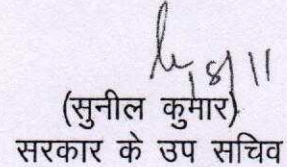 18/11
(सुनील कुमार)
सरकार के उप सचिव